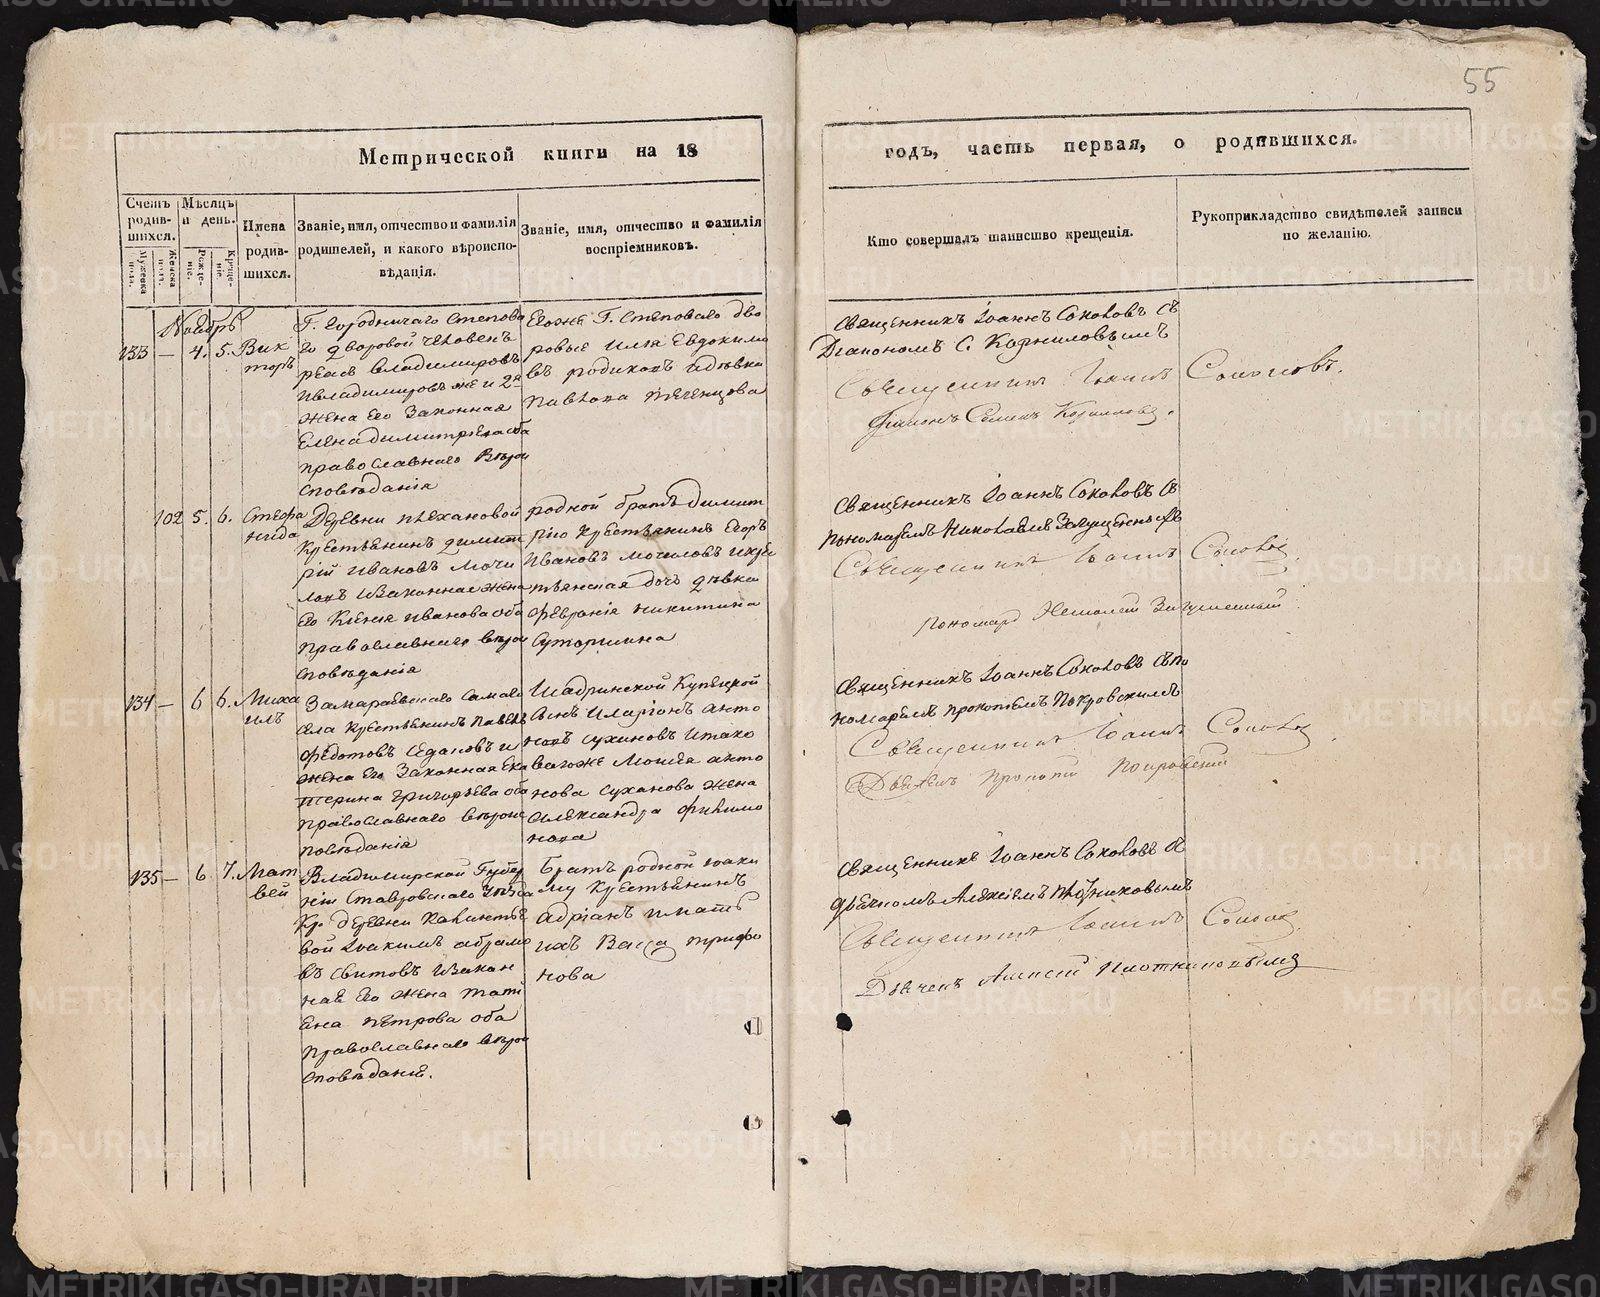 55
Метрической книги на 18
годъ, часть первая, о родившихся.
Счетъ родив- шихся.
Мужеска пола.
Женска пола.
Мѣсяцъ и день.
Рожде- ніе.
Креще- ніе.
Имена родив- шихся.
Званіе, имя, отчество и фамилія
родителей, и какого вѣроиспо-
вѣданія.
Званіе, имя, отчество и фамилія
воспріемниковъ.
Кто совершалъ таинство крещенія.
Рукоприкладство свидѣтелей записи
по желанію.
Ноябрь
133 — 4. 5. Вик
торъ
Г. Городничаго Степова
го дворовой человекъ
Владимировъ
Владимировъ же и 2я
жена его законная
Елена Димитріева оба
православнаго вѣрои
споведанія
Егоже Г. Степоваго дво
ровые Илья Евдокимо
въ родионъ и девка
Павлова
Священникъ Іоаннъ Соколовъ съ
Діакономъ С. Корниловымъ
Священникъ Іоаннъ Соколовъ.
102 5. 6. Стефа
нида
Деревни Плехановой
Крестьянинъ Димит
рій Ивановъ Мочи
ловъ и законная жена
его Ксенія Иванова оба
православнаго вѣрои
споведанія
родной братъ Димит
рію Крестьянинъ Егоръ
Ивановъ Мочиловъ и кре
стьянская дочь девка
Февронія Никитина
Сутормина
Священникъ Іоаннъ Соколовъ съ
пономаремъ Николаемъ
Священникъ Іоаннъ Соколовъ
134 — 6 6. Миха
илъ
Замараевскаго самаго
села крестьянинъ Павелъ
Федотовъ Седановъ и
жена его законная Ека
терина Григорьева оба
православнаго вѣроис
поведанія
Шадринской Купецкой
сынъ Иларіонъ Анто
новъ Сухановъ и тако
ваго же Моисея Анто
нова Суханова жена
Александра Филимо
нова
Священникъ Іоаннъ Соколовъ съ по
номаремъ Прокопіемъ Покровскимъ
Священникъ Іоаннъ Соколовъ
Прокопій Покровскій
135 — 6 7. Мат
вей
Владимирской Губер
ніи Ставровскаго Уезда
Кр. деревни
вой Іоакимъ Абрамо
въ Свитовъ и закон
ная его жена Тати
ана Петрова оба
православнаго вѣрои
споведаній.
Братъ родной Іоаки
му крестьянинъ
Адріанъ и мать
ихъ Васса Трифо
нова
Священникъ Іоаннъ Соколовъ съ
дьячкомъ Алексѣемъ Плотниковымъ
Священникъ Іоаннъ Соколовъ
Дьячекъ Алексѣй
METRIKI.GASO-URAL.RU